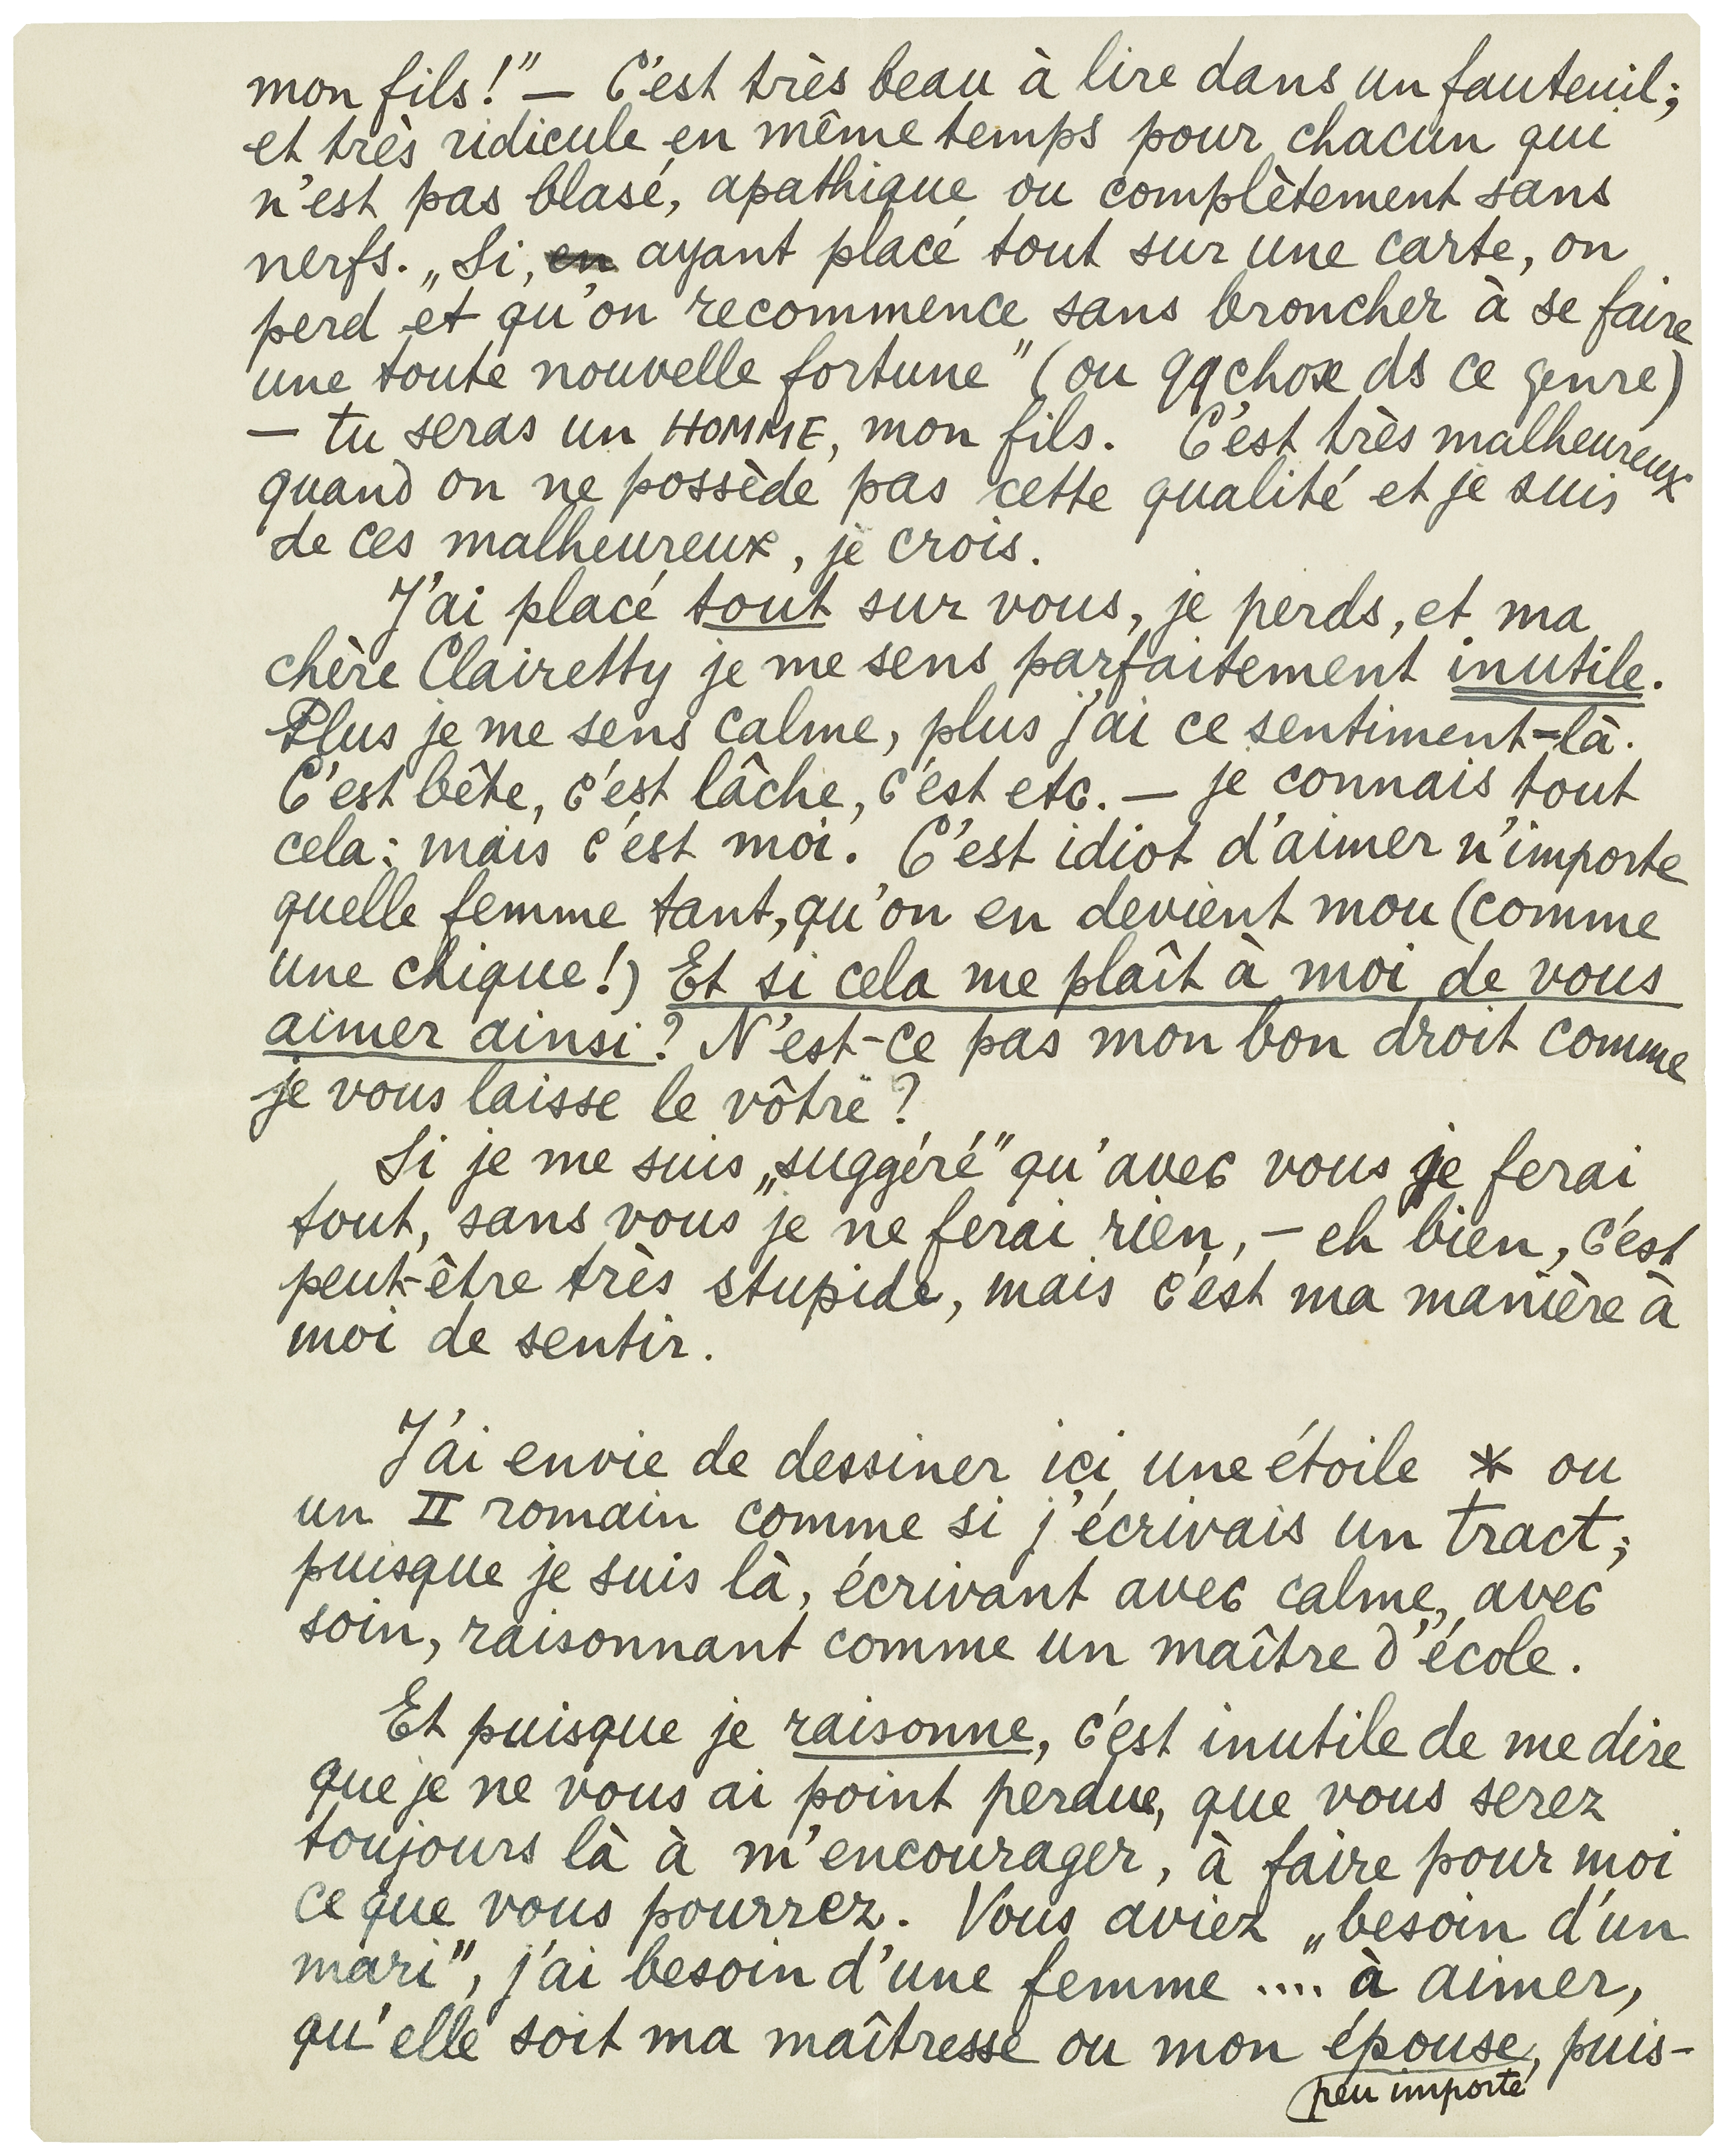 mon fils!" — C'est très beau à lire dans un fauteuil;
et très ridicule en même temps pour chacun qui
n'est pas blasé, apathique ou complètement sans
nerfs. „Si, en ayant placé tout sur une carte, on
perd et qu'on recommence sans broncher à se faire
une toute nouvelle fortune" (ou qqchose ds ce genre)
— tu seras un HOMME, mon fils. C'est très malheureux
quand on ne possède pas cette qualité et je suis
de ces malheureux, je crois.
J'ai placé tout sur vous, je perds, et ma
chère Clairetty je me sens parfaitement inutile.
Plus je me sens calme, plus j'ai ce sentiment-là.
C'est bête, c'est lâche, c'est etc. — je connais tout
cela; mais c'est moi. C'est idiot d'aimer n'importe
quelle femme tant, qu'on en devient mou (comme
une chique!) Et si cela me plaît à moi de vous
aimer ainsi? N'est-ce pas mon bon droit comme
je vous laisse le vôtre?
Si je me suis „suggéré" qu'avec vous je ferai
tout, sans vous je ne ferai rien, – eh bien, c'est
peut-être très stupide, mais c'est ma manière à
moi de sentir.
J'ai envie de dessiner ici une étoile * ou
un II romain comme si j'écrivais un tract;
puisque je suis là, écrivant avec calme, avec
soin, raisonnant comme un maître d'école.
Et puisque je raisonne, c'est inutile de me dire
que je ne vous ai point perdue, que vous serez
toujours là à m'encourager, à faire pour moi
ce que vous pourrez. Vous aviez „besoin d'un
mari", j'ai besoin d'une femme .... à aimer,
qu'elle soit ma maîtresse ou mon épouse, puis-
peu importe